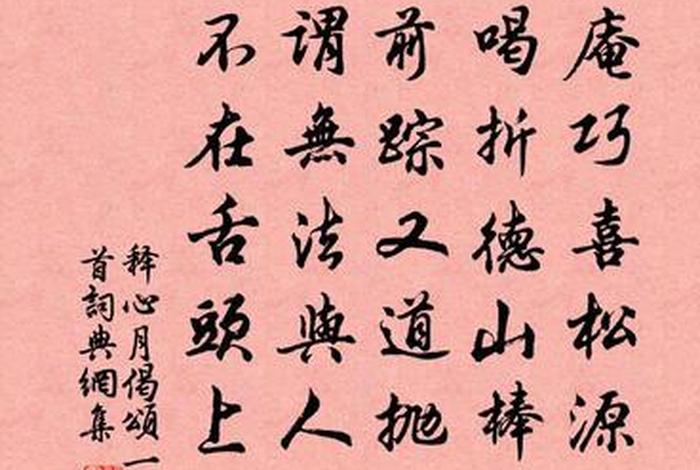 庵巧喜松源
喝折德山棒
前踪又道抛
謂無法與人
不在舌頭上
释心月偈頌一
首詞典網集